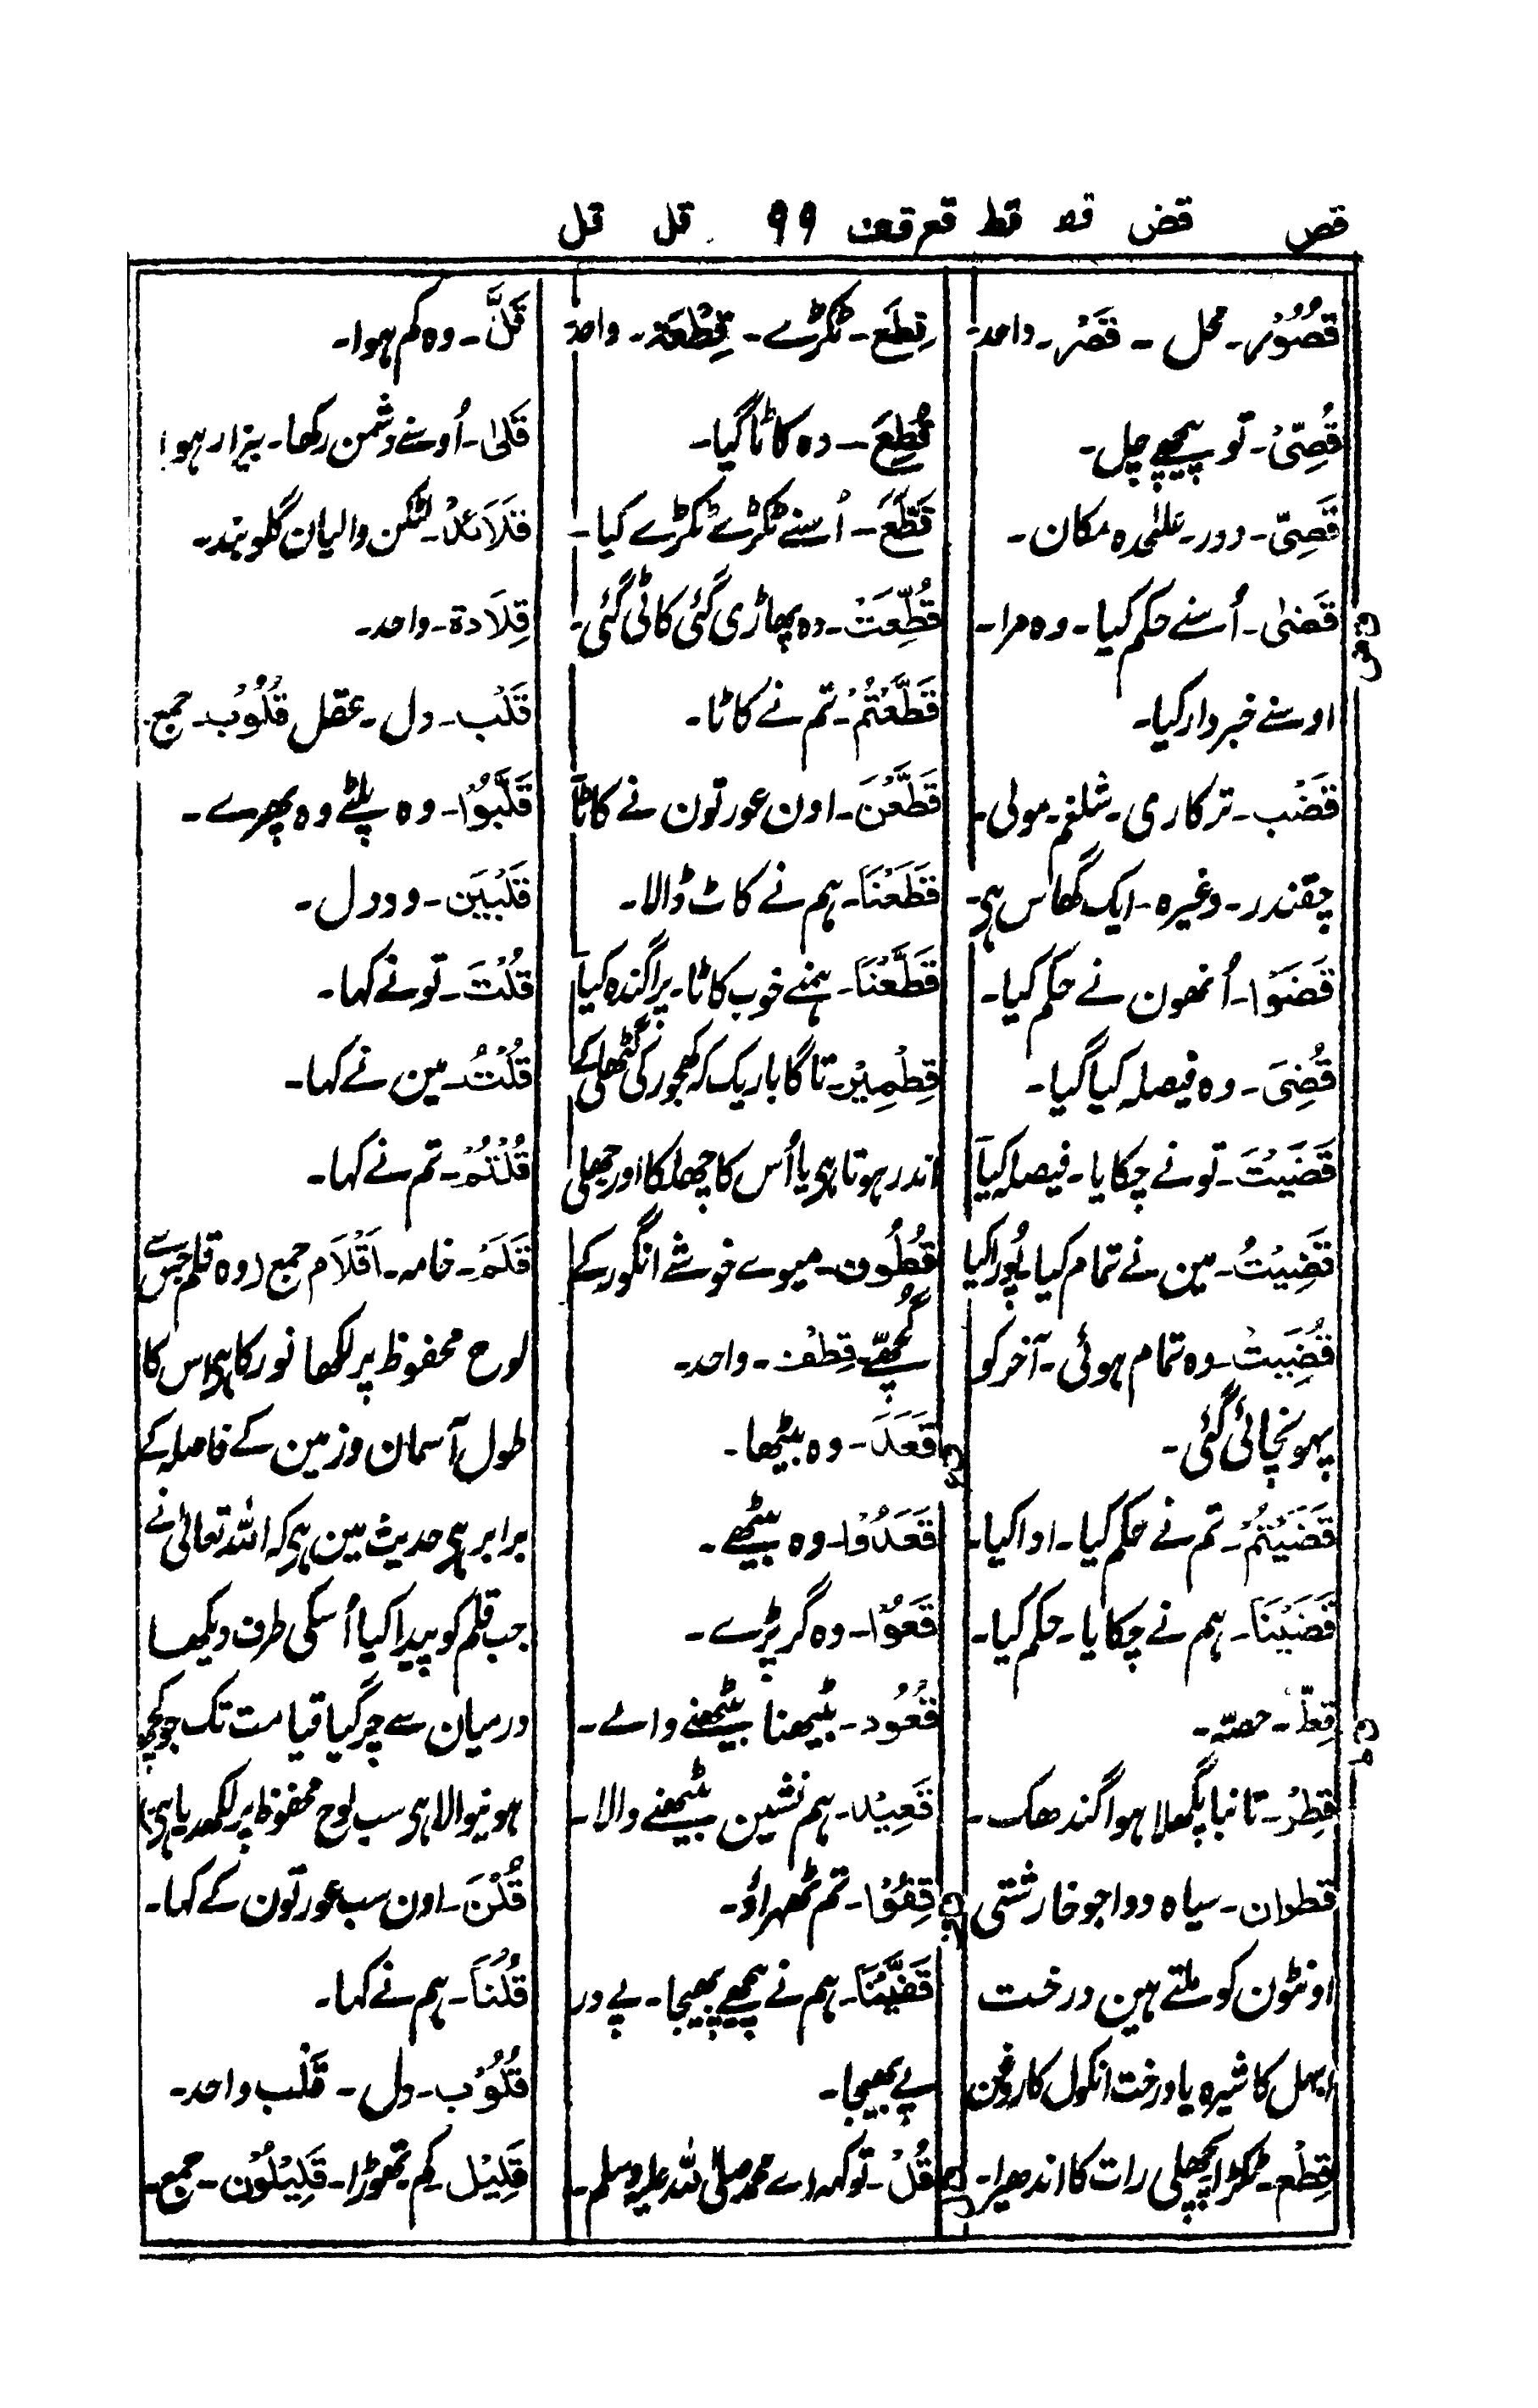 قص قض قط قط قع قف ۹۹ قل قل
قُصُوْر۔ محل ۔ قَصْر۔ واحد۔
قُصِّیْ۔ تو پیچھے چل۔
قَصِیّ۔ دور۔ علٰحدہ مکان۔
قض
قَضٰی۔ اُسنے حکم کیا۔ وہ مرا۔
اوسنے خبردار کیا۔
قَضْب۔ ترکاری۔ شلغم۔ مولی۔
چقندر۔ وغیرہ۔ ایک گھاس ہی۔
قَضَوْا۔ اُنھون نے حکم کیا۔
قُضِیَ۔ وہ فیصلہ کیا گیا۔
قَضَیْتَ۔ تو نے چکایا۔ فیصلہ کیا
قَضَیْتُ۔ مین نے تمام کیا۔ پُورا کیا
قُضِیَتْ۔ وہ تمام ہوئی۔ آخر کو
پہونچائی گئی۔
قَضَیْتُمْ۔ تم نے حکم کیا۔ ادا کیا۔
قَضَیْنَا۔ ہم نے چکایا۔ حکم کیا۔
قط
قِطّ۔ حصّہ۔
قِطْر۔ تانبا پگھلا ہوا گندھک۔
قطران۔ سیاہ دوا جو خارشتی
اونٹون کو ملتے ہین درخت
ابہل کا شیرہ یا درخت انکول کا روغن
قِطْع۔ ٹکڑا پچھلی رات کا اندھیرا۔
قِطَع۔ ٹکڑے۔ قِطْعَة۔ واحد
قُطِعَ۔ وہ کاٹا گیا۔
قَطَّعَ۔ اُسنے ٹکڑے ٹکڑے کیا۔
قُطِّعَتْ۔ وہ پھاڑی گئی کاٹی گئی۔
قَطَّعْتُمْ۔ تم نے کاٹا۔
قَطَّعْنَ۔ اون عورتون نے کاٹا
قَطَعْنَا۔ ہم نے کاٹ ڈالا۔
قَطَّعْنَا۔ ہمنے خوب کاٹا۔ پراگندہ کیا
قِطْمِیْر۔ تاگا باریک کہ کھجور کی گٹھلی کے
اندر ہوتا ہی یا اُس کا چھلکا اور جھلی
قُطُوْن۔ میوے خوشے انگور کے
گچھے۔ قِطْف۔ واحد۔
قع
قَعَدَ۔ وہ بیٹھا۔
قَعَدُوْا۔ وہ بیٹھے۔
قَعَوْا۔ وہ گر پڑے۔
قُعُوْد۔ بیٹھنا بیٹھنے والے۔
قَعِیْد۔ ہم نشین بیٹھنے والا۔
قف
قِفُوْا۔ تم ٹھہراؤ۔
قَفَّیْنَا۔ ہم نے پیچھے بھیجا۔ پے در
پے بھیجا۔
قل
قُلْ۔ تو کہہ اے محمد صلی اللہ علیہ وسلم۔
قَلَّ۔ وہ کم ہوا۔
قَلٰی۔ اُوسنے دشمن رکھا۔ بیزار ہوا
قَلَائِد۔ لٹکن والیان گلوبند۔
قِلَادة۔ واحد۔
قَلْب۔ دل۔ عقل قُلُوْب۔ جمع۔
قَلَّبُوْا۔ وہ پلٹے وہ پھرے۔
قَلْبَیْن۔ دو دل۔
قُلْتَ۔ تو نے کہا۔
قُلْتُ۔ مین نے کہا۔
قُلْتُمْ۔ تم نے کہا۔
قَلَم۔ خامہ۔ اَقْلَام جمع (وہ قلم جس سے
لوح محفوظ پر لکھا نور کا ہی اس کا
طول آسمان و زمین کے فاصلہ کے
برابر ہی حدیث مین ہی کہ اللہ تعالیٰ نے
جب قلم کو پیدا کیا اُسکی طرف دیکھا
درمیان سے چر گیا قیامت تک جو کچھ
ہونیوالا ہی سب لوح محفوظ پر لکھدیا ہی)
قُلْنَ۔ اون سب عورتون کے کہا۔
قُلْنَا۔ ہم نے کہا۔
قُلُوْب۔ دل۔ قَلْب واحد۔
قَلِیْل کم۔ تھوڑا۔ قَلِیْلُوْن۔ جمع۔